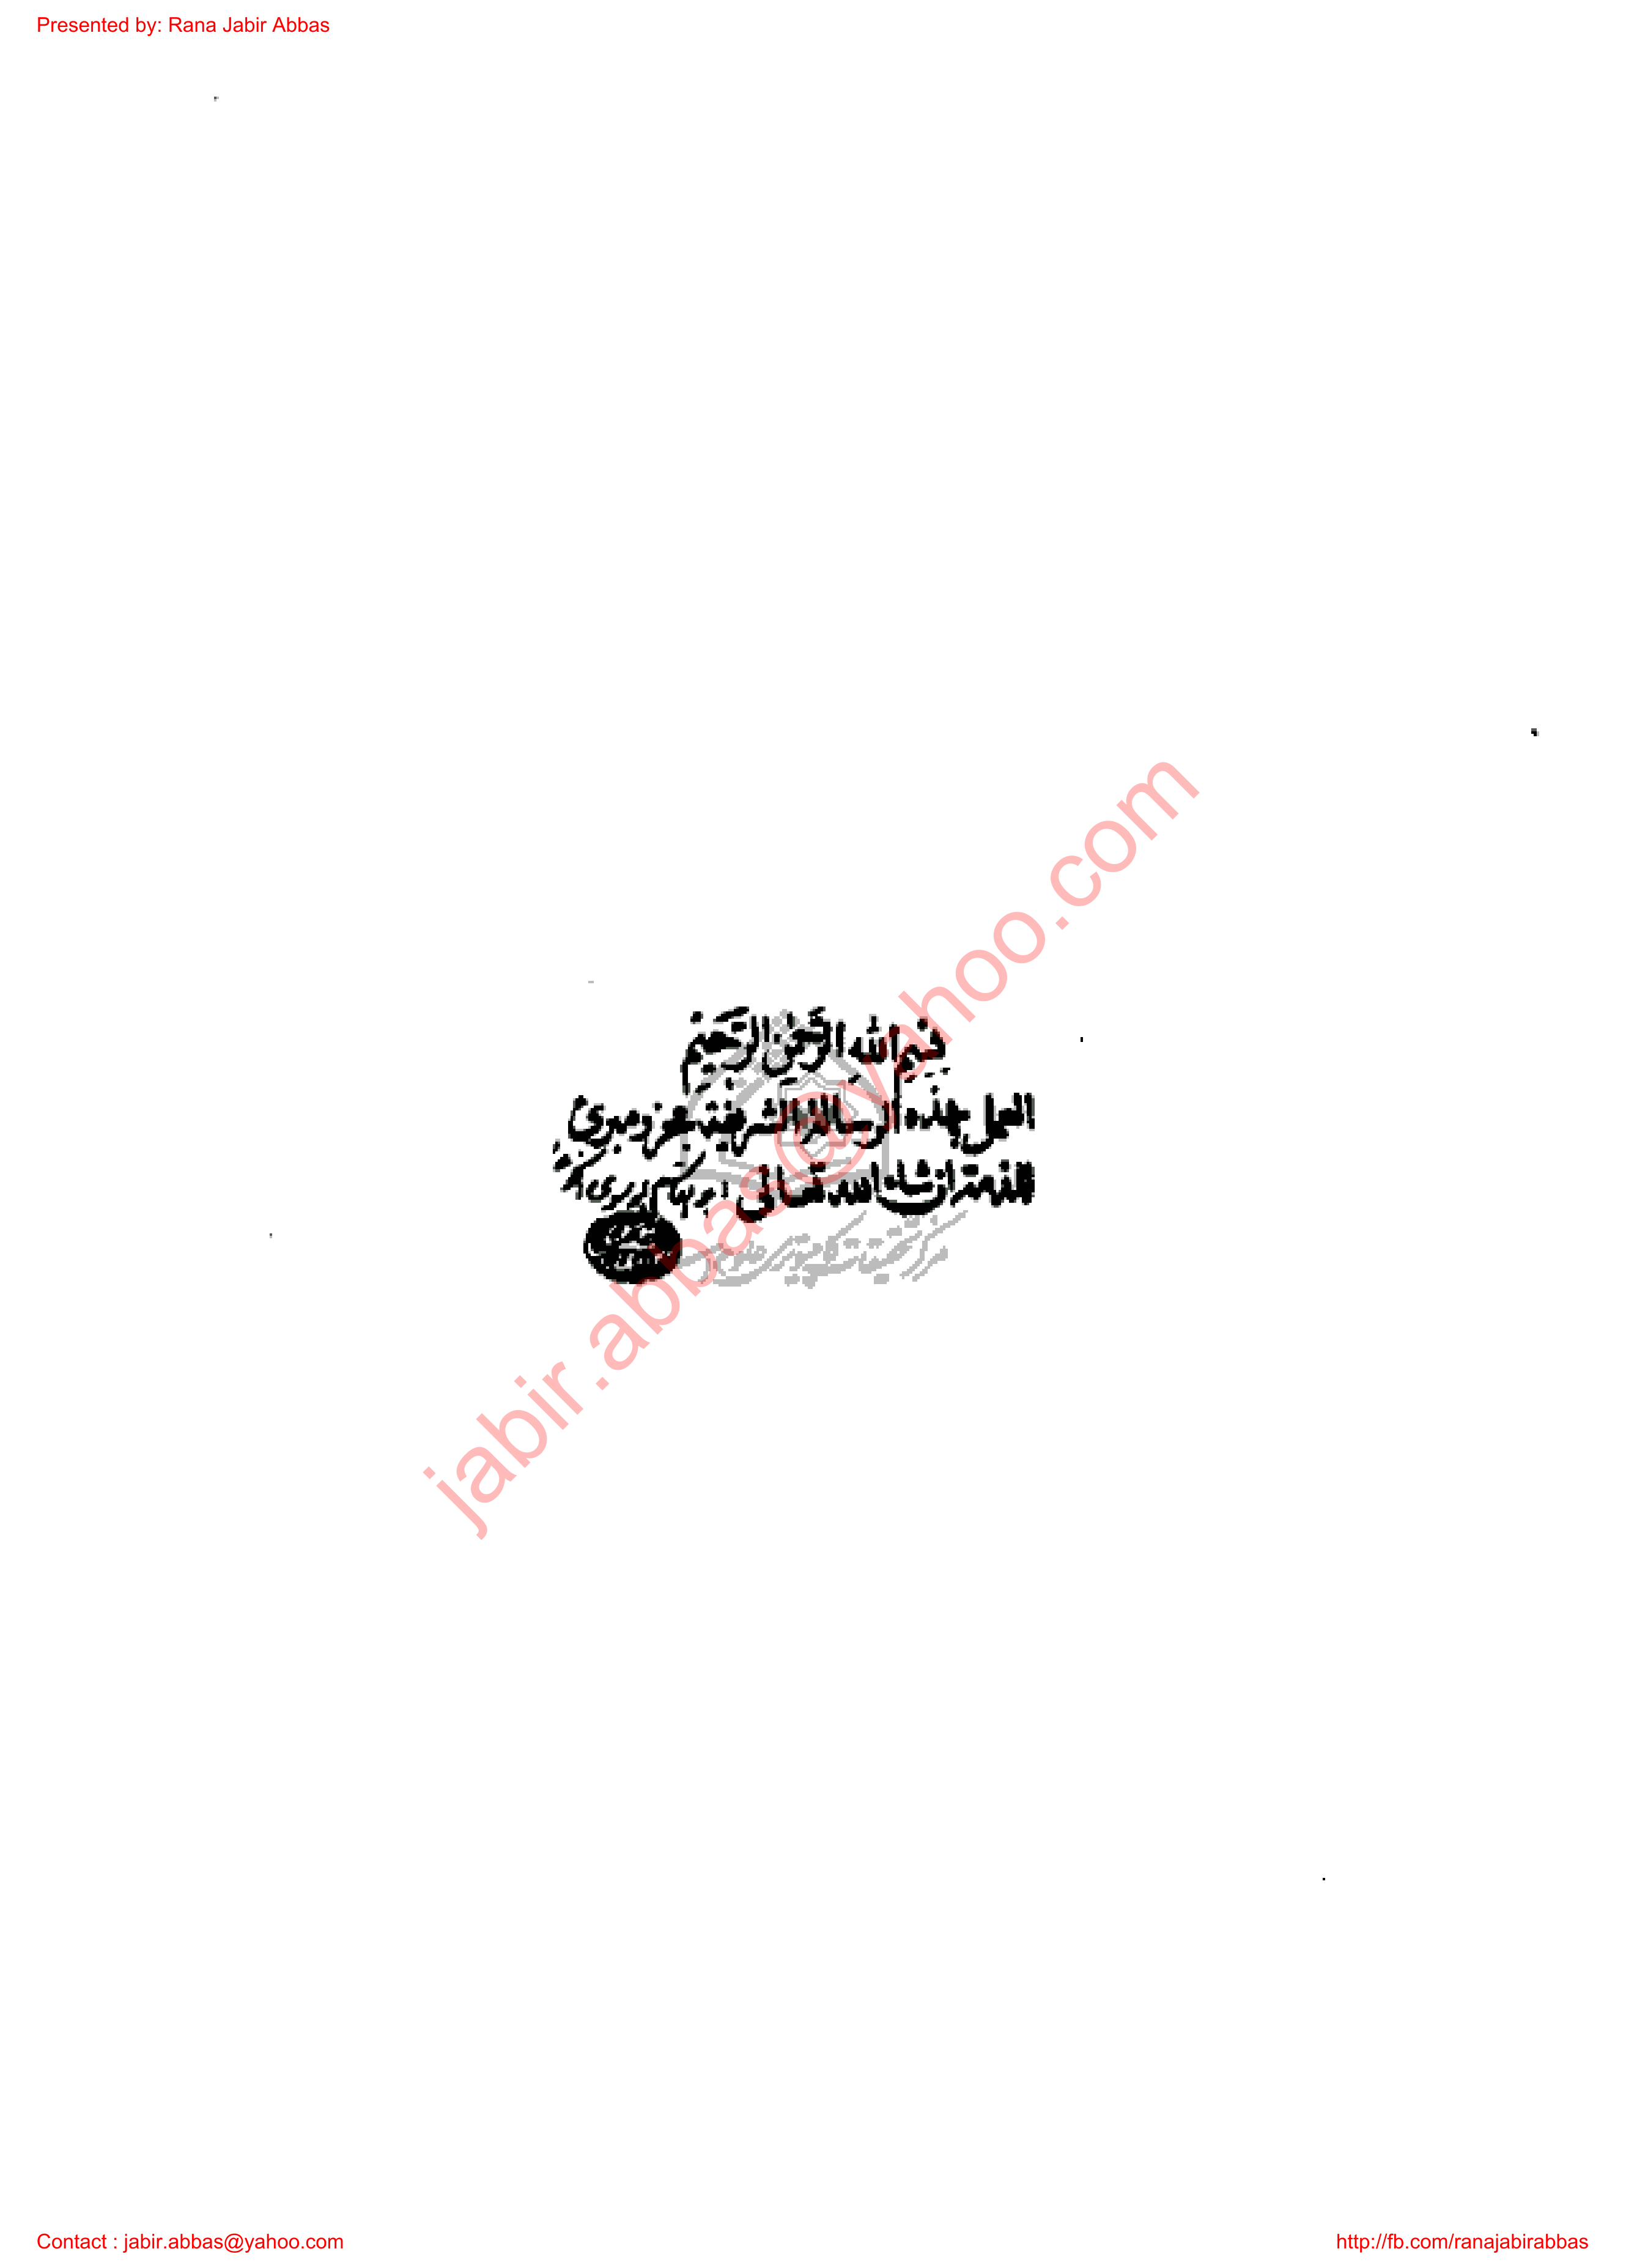 Presented by: Rana Jabir Abbas
بِسْمِ اللّٰهِ الرَّحْمٰنِ الرَّحِيْمِ
العمل بهذه الرسالة الشريفة مجز ومبرئ
للذمة ان شاء الله تعالى
jabir.abbas@yahoo.com
Contact : jabir.abbas@yahoo.com
http://fb.com/ranajabirabbas